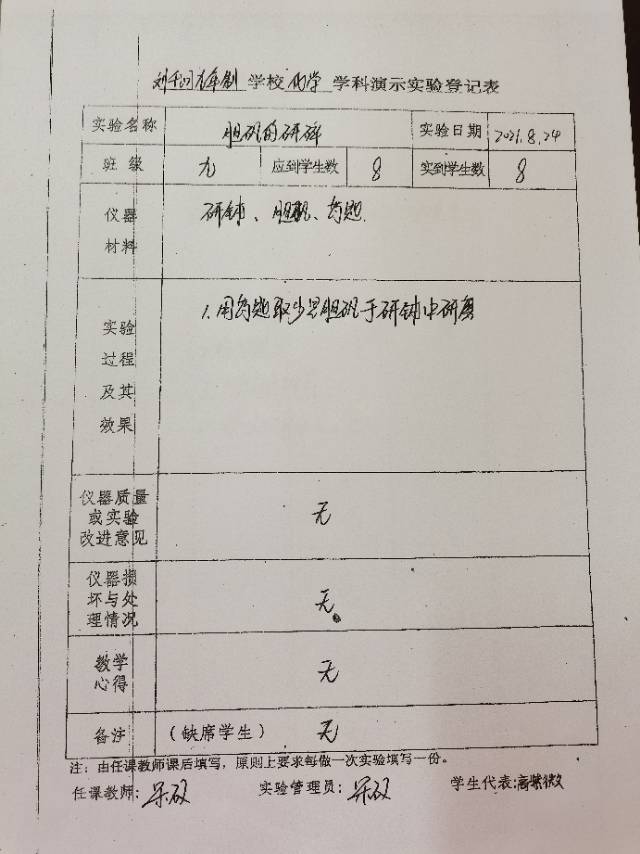 学校 化学 学科演示实验登记表
实验名称 胆矾的研碎 实验日期 2021.8.24
班 级 九 应到学生数 8 实到学生数 8
仪器 研钵、胆矾、药匙.
材料
1.用药匙取少量胆矾于研钵中研磨
实验
过程
及其
效果
仪器质量
或实验 无
改进意见
仪器损
坏与处 无
理情况
教学 无
心得
备注 (缺席学生) 无
注:由任课教师课后填写,原则上要求每做一次实验填写一份。
任课教师: 实验管理员: 学生代表:高紫微